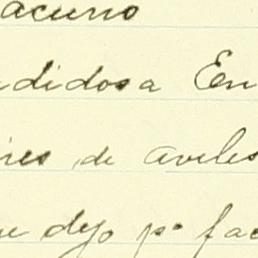 acurio
didos a En
ires de aviles
ue dejo pº fac